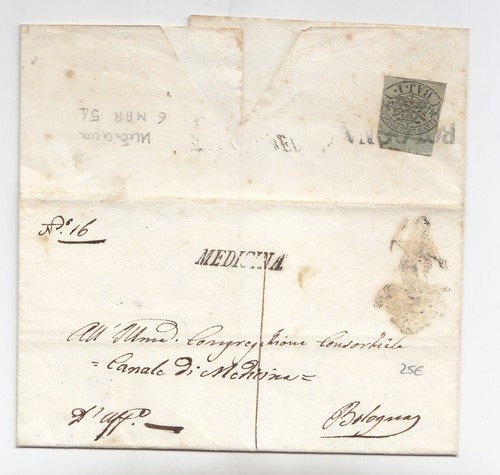 BAJ.1.
BOLOGNA
Medicina
6 MAR 54
N.º 16
MEDICINA
All' Illma. Congregazione Consorziale
= Canale di Medicina =
25€
D'Uffº.
Bologna